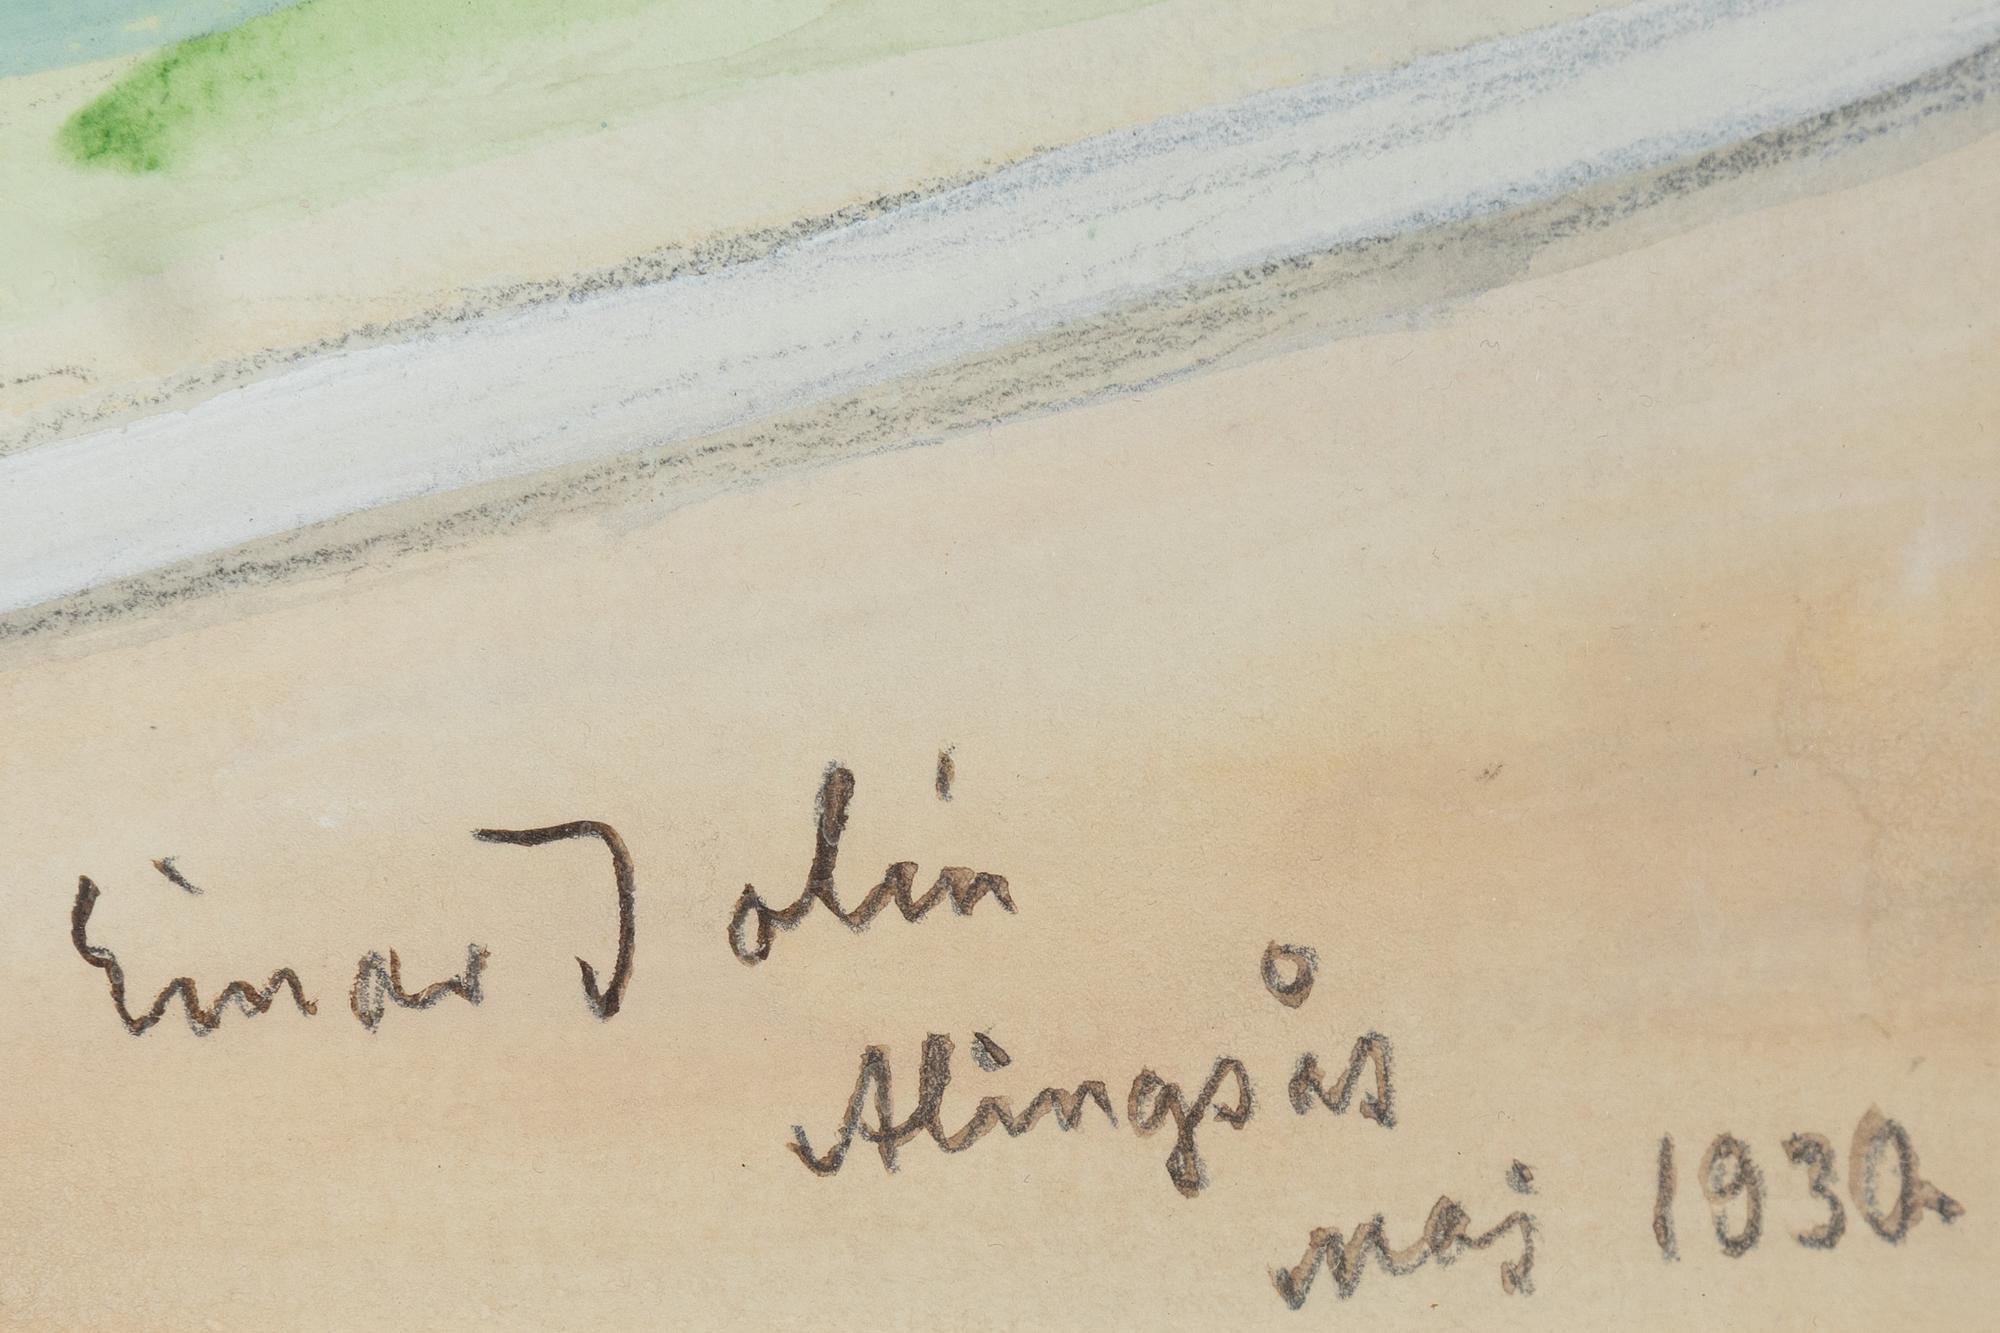 Einar Jolin
Alingsås
maj 1930.